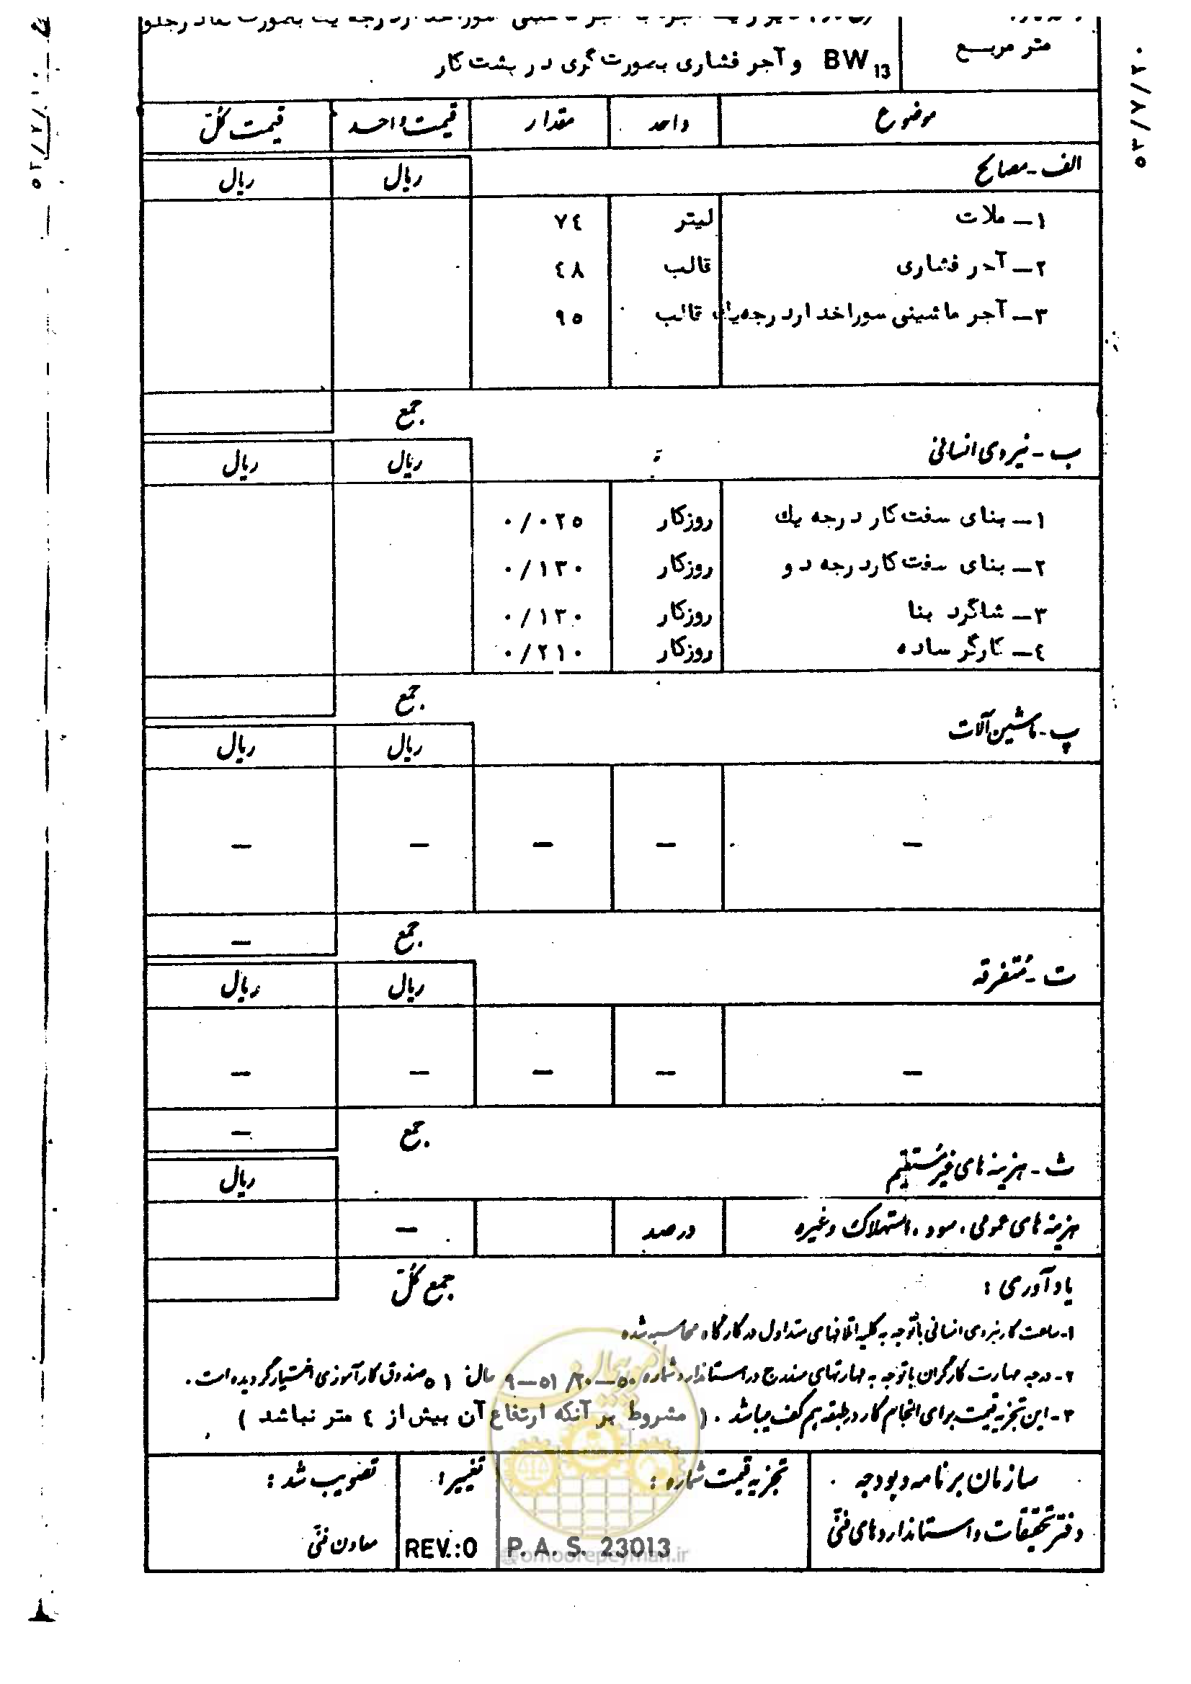 متر مربع
BW13 و آجر فشاری بصورت گری در پشت کار
موضوع واحد مقدار قیمت واحد قیمت کل
الف - مصالح ریال ریال
۱- ملات لیتر ۷٤
۲- آجر فشاری قالب ٤۸
۳- آجر ماشینی سوراخدار درجه یك قالب ۹۵
جمع
ب - نیروی انسانی ریال ریال
۱- بنای سفت کار درجه یك روزکار ۰/۰۲۵
۲- بنای سفت کار درجه دو روزکار ۰/۱۳۰
۳- شاگرد بنا روزکار ۰/۱۳۰
٤- کارگر ساده روزکار ۰/۲۱۰
جمع
پ - ماشین آلات ریال ریال
— — — — —
جمع —
ت - متفرقه ریال ریال
— — — — —
جمع —
ث - هزینه های غیر مستقیم ریال
هزینه های عمومی ، سود ، استهلاک وغیره درصد —
جمع کل
یادآوری :
۱- ساعت کار نیروی انسانی باتوجه به کلیه اتلافهای متداول در کارگاه محاسبه شده
۲- درجه مهارت کارگران باتوجه به مهارتهای مندرج در استاندارد شماره صندوق کارآموزی اختیار گردیده است .
۳- این تجزیه قیمت برای انجام کار در طبقه هم کف میباشد . ( مشروط بر آنکه ارتفاع آن بیش از ٤ متر نباشد )
سازمان برنامه و بودجه تجزیه قیمت شماره : تغییر : تصویب شد :
دفتر تحقیقات و استانداردهای فنی P. A. S. 23013 REV.:0 معاون فنی
۵۳/۷/۲۰
@omoorepeyman.ir